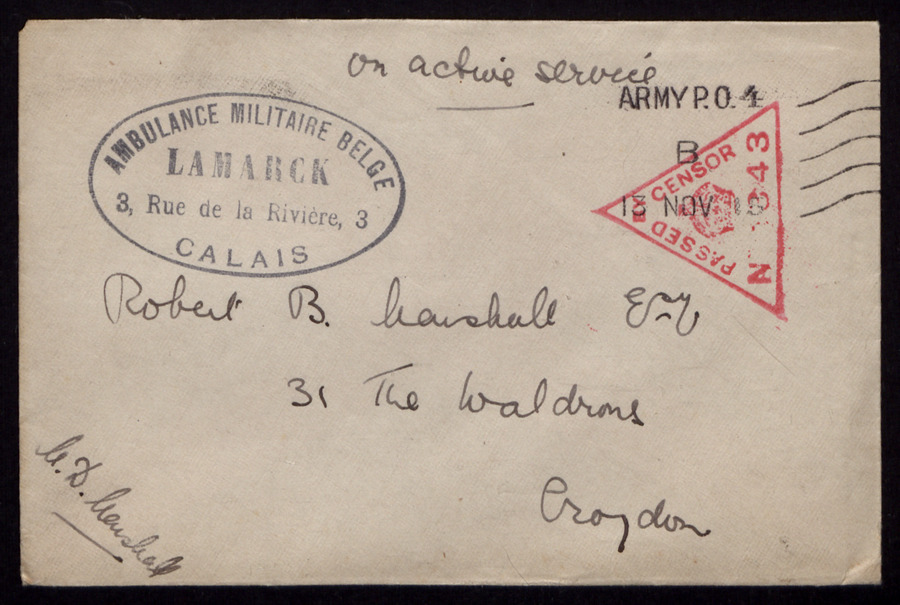 on active service
ARMY P.O. 4
B
13 NOV 15
PASSED BY CENSOR
No 1643
AMBULANCE MILITAIRE BELGE
LAMARCK
3, Rue de la Rivière, 3
CALAIS
Robert B. Marshall Esq
31 The Waldrons
Croydon
M.D. Marshall